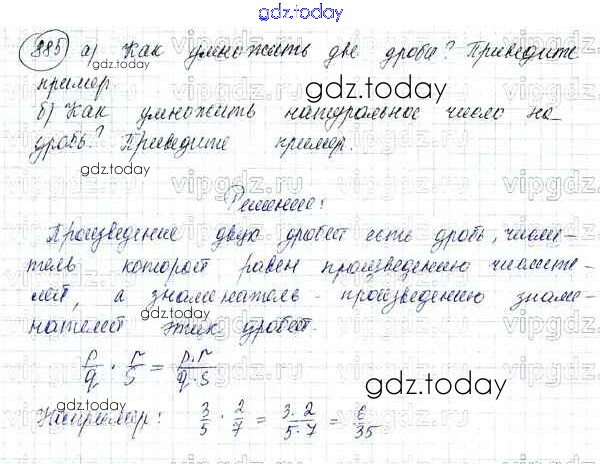 gdz.today
885 а) Как умножить две дроби? Приведите
gdz.today
пример
gdz.today
б) Как умножить натуральное число на
дробь? Приведите пример.
gdz.today
vipgdz.ru vipgdz.ru vipgdz.ru
Решение:
Произведение двух дробей есть дробь, числи-
тель которой равен произведению числите-
лей, а знаменатель - произведению знаме-
нателей этих дробей.
gdz.today
p/q · r/s = p·r/q·s
gdz.today
Например: 3/5 · 2/7 = 3·2/5·7 = 6/35